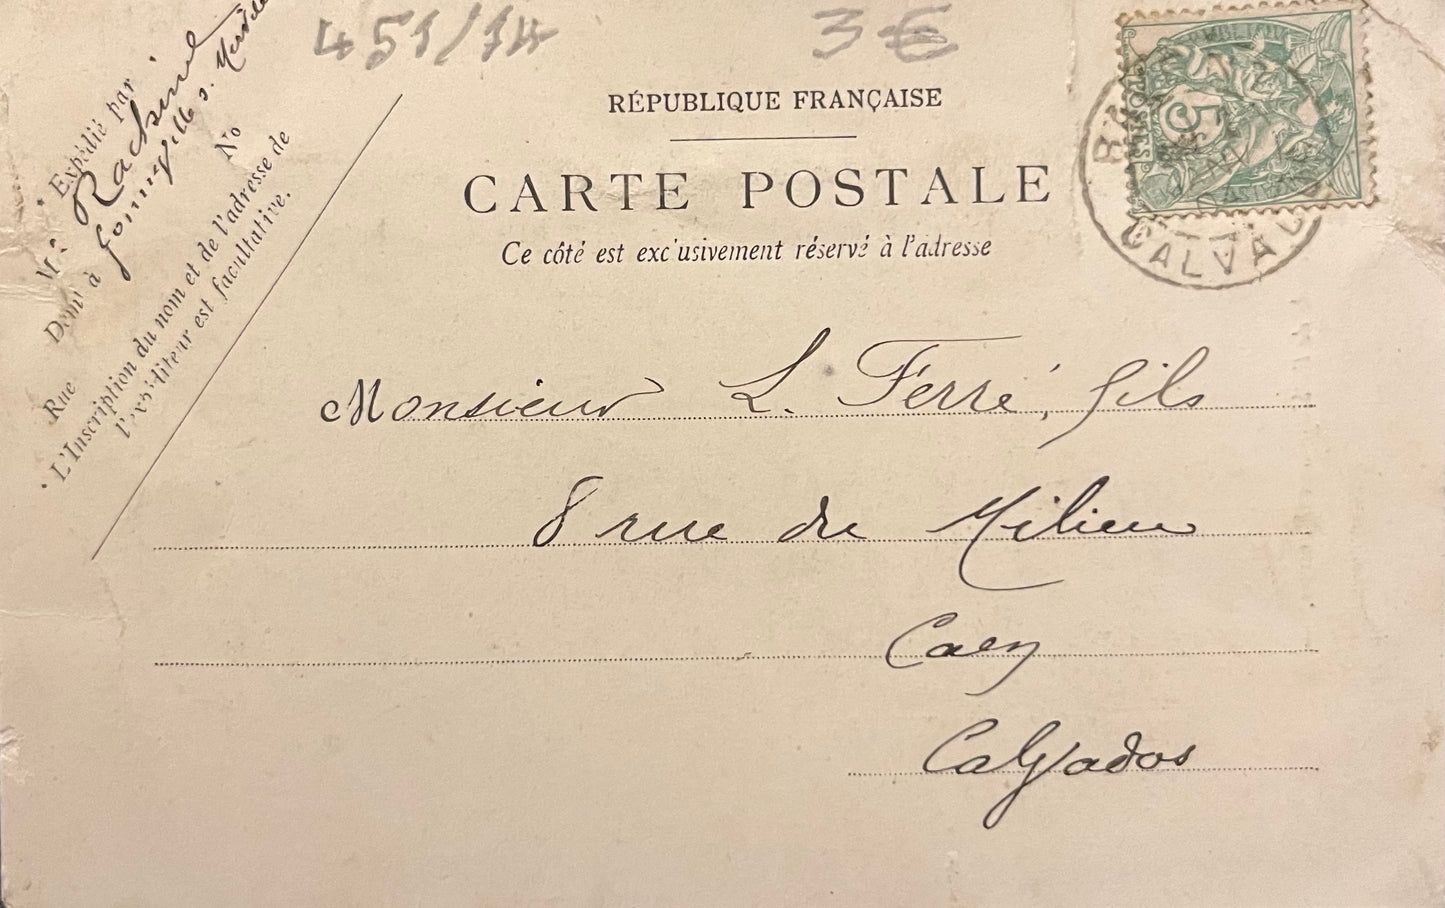 451/14
3€
RÉPUBLIQUE FRANÇAISE
CARTE POSTALE
Ce côté est exc'usivement réservé à l'adresse
Expédié par
Mr Rachinel
Demt à Gonneville s. Merville
Rue No
L'Inscription du nom et de l'adresse de
l'expéditeur est facultative.
POSTES
5
CALVADOS
Monsieur L. Ferré, fils
8 rue du Milieu
Caen
Calvados